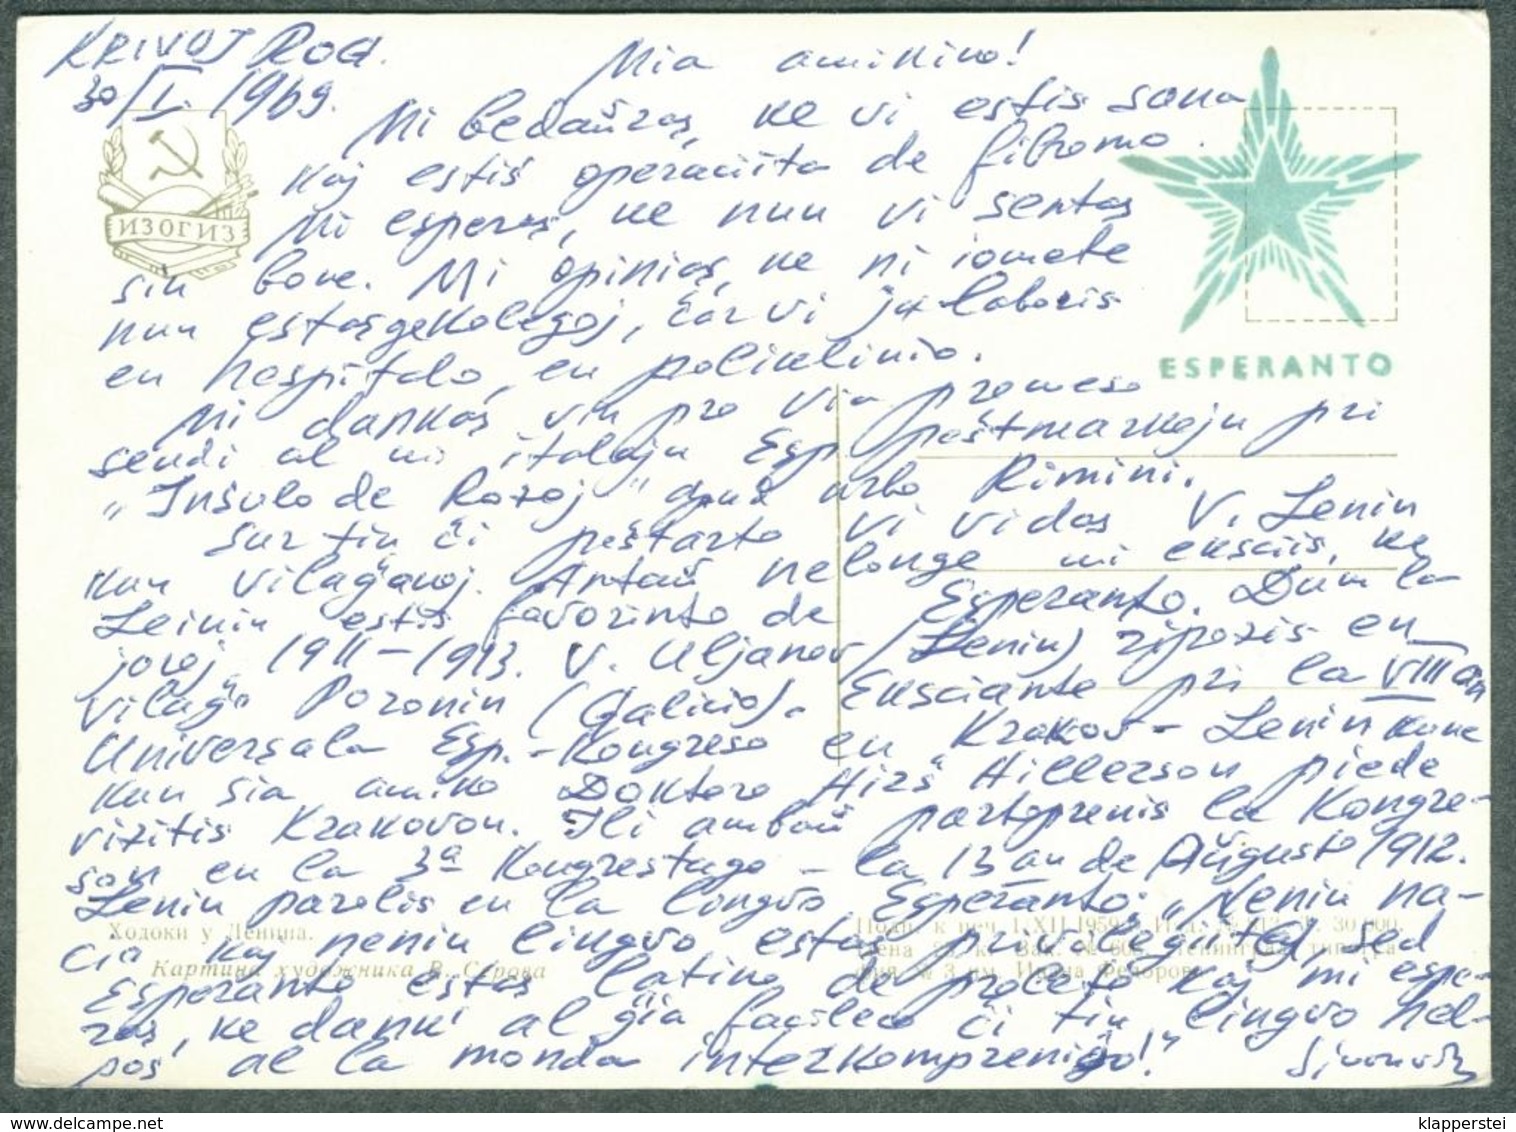 KRIVOJ ROG.
30/I. 1969.
Mia amikino!
Mi bedaŭras, ke vi estis sana
kaj estis operaciita de fibromo.
Mi esperas, ke nun vi sentas
sin bone. Mi opinias, ke ni iomete
nun estas gekolegoj, ĉar vi ja laboris
en hospitalo, en polikliniko.
Mi dankas vin pro via promeso
sendi al mi italajn Esp. poŝtmarkojn pri
„Insulo de Rozoj" apud urbo Rimini.
Sur tiu ĉi poŝtkarto vi vidas V. Lenin
kun vilaĝanoj. Antaŭ nelonge mi eksciis, ke
Leinin estis favorinto de Esperanto. Dum la
jaroj 1911–1913. V. Uljanov (Lenin) ripozis en
vilaĝo Poronin (Galicio). Eksciante pri la VIIIan
Universala Esp.-Kongreso en Krakov – Lenin kune
kun sia amiko Doktoro Hirŝ Hillerson piede
vizitis Krakovon. Ili ambaŭ partoprenis la Kongre-
son en la 3a Kongrestago – la 13an de Aŭgusto 1912.
Lenin parolis en la lingvo Esperanto: „Neniu na-
cia kaj neniu lingvo estas privilegiitaj red
Esperanto estas latino de proleto kaj mi espe-
ras, ke dank' al ĝia facileco ĉi tiu lingvo hel-
pos al la monda interkompreniĝo!"
ИЗОГИЗ
ESPERANTO
Ходоки у Ленина.
Картина художника В. Серова
klapperstei on delcampe.net